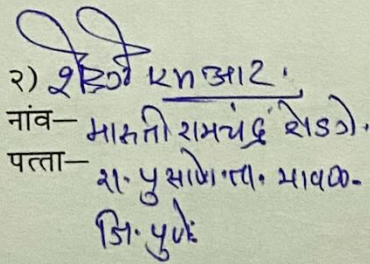 २) शेडगे एम आर.
नांव— मारुती रामचंद्र शेडगे.
पत्ता— रा. पुसाणे. ता. मावळ-
जि. पुणे